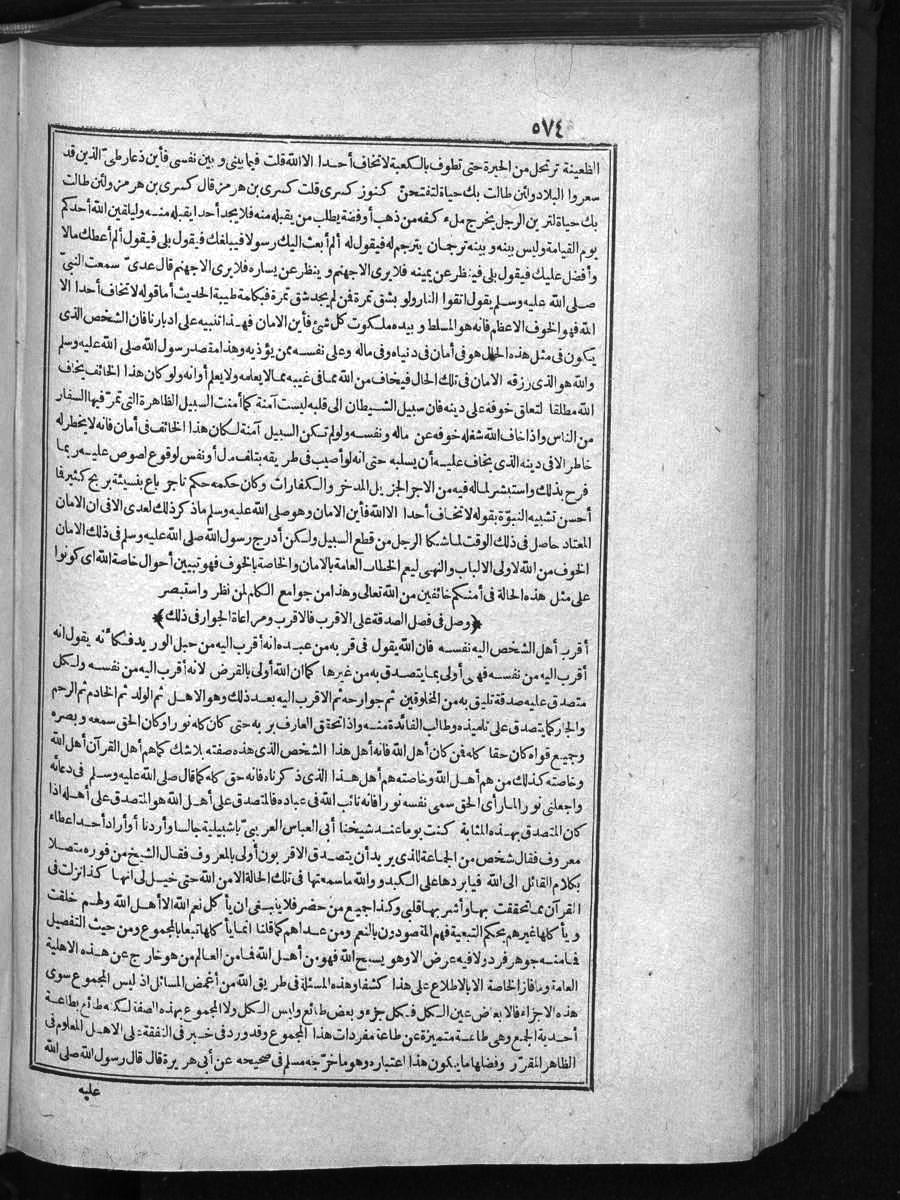 ٥٧٤
الظعينة ترتحل من الحيرة حتى تطوف بالكعبة لا تخاف أحدا الا الله قلت فيما بيني وبين نفسي فأين ذعار طيّ الذين قد
سعروا البلاد ولئن طالت بك حياة لتفتحنّ كنوز كسرى قلت كسرى بن هرمز قال كسرى بن هرمز ولئن طالت
بك حياة لترين الرجل يخرج ملء كفه من ذهب أو فضة يطلب من يقبله منه فلا يجد أحدا يقبله منه وليلقين الله أحدكم
يوم القيامة وليس بينه وبينه ترجمان يترجم له فيقول له ألم أبعث اليك رسولا فيبلغك فيقول بلى فيقول ألم أعطك مالا
وأفضل عليك فيقول بلى فينظر عن يمينه فلا يرى الا جهنم وينظر عن يساره فلا يرى الا جهنم قال عدىّ سمعت النبىّ
صلى الله عليه وسلم يقول اتقوا النار ولو بشق تمرة فمن لم يجد شق تمرة فبكلمة طيبة الحديث أما قوله لا تخاف أحدا الا
الله فهو الخوف الاعظم فانه هو المسلط وبيده ملكوت كل شئ فأين الامان فهذا تنبيه على ادبارنا فان الشخص الذى
يكون فى مثل هذه الحال هو فى أمان فى دنياه وفى ماله وعلى نفسه ممن يؤذيه وهذا مقصد رسول الله صلى الله عليه وسلم
والله هو الذى رزقه الامان فى تلك الحال فيخاف من الله مما فى غيبه مما لا يعلمه ولا يعلم أوانه ولو كان هذا الخائف يخاف
الله مطلقا لتعلق خوفه على دينه فان سبيل الشيطان الى قلبه ليست آمنة كما أمنت السبيل الظاهرة التى تمرّ فيها السفار
من الناس واذا خاف الله شغله خوفه عن ماله ونفسه ولو لم تكن السبيل آمنة لكان هذا الخائف فى أمان فانه لا يخطر له
خاطر الا فى دينه الذى يخاف عليه أن يسلبه حتى انه لو أصيب فى طريقه بتلف مال أو نفس لوقوع لصوص عليه ربما
فرح بذلك واستبشر لما له فيه من الاجر الجزيل المدخر والكفارات وكان حكمه حكم تاجر باع بنسيئة بربح كثير فما
أحسن تشبيه النبوّة بقوله لا تخاف أحدا الا الله فأين الامان وهو صلى الله عليه وسلم ما ذكر ذلك لعدى الا فى ان الامان
المعتاد حاصل فى ذلك الوقت لما شكا الرجل من قطع السبيل ولكن أدرج رسول الله صلى الله عليه وسلم فى ذلك الامان
الخوف من الله لاولى الالباب والنهى ليعم الخطاب العامة بالامان والخاصة بالخوف فهو تبيين أحوال خاصة الله اى كونوا
على مثل هذه الحالة فى أمنكم خائفين من الله تعالى وهذا من جوامع الكلم لمن نظر واستبصر
﴿وصل فى فضل الصدقة على الاقرب فالاقرب ومراعاة الجوار فى ذلك﴾
أقرب أهل الشخص اليه نفسه فان الله يقول فى قربه من عبده انه أقرب اليه من حبل الوريد فكأنه يقول انه
أقرب اليه من نفسه فهى أولى بما يتصدق به من غيرها كما ان الله أولى بالقرض لانه أقرب اليه من نفسه ولكل
متصدق عليه صدقة تليق به من المخلوقين ثم جوارحه ثم الاقرب اليه بعد ذلك وهو الاهل ثم الولد ثم الخادم ثم الرحم
والجار كما يتصدق على تلميذه وطالب الفائدة منه واذا تحقق العارف بربه حتى كان كله نورا وكان الحق سمعه وبصره
وجميع قواه كان حقا كله فمن كان أهل الله فانه أهل هذا الشخص الذى هذه صفته بلا شك كما هم أهل القرآن أهل الله
وخاصته كذلك من هم أهل الله وخاصته هم أهل هذا الذى ذكرناه فانه حق كله كما قال صلى الله عليه وسلم فى دعائه
واجعلنى نورا لما رأى الحق سمى نفسه نورا فانه نائب الله فى عباده فالمتصدق على أهل الله هو المتصدق على أهله اذا
كان المتصدق بهذه المثابة كنت يوما عند شيخنا أبى العباس العريبىّ باشبيلية جالسا وأردنا أو أراد أحد اعطاء
معروف فقال شخص من الجماعة للذى يريد أن يتصدق الاقربون أولى بالمعروف فقال الشيخ من فوره متصلا
بكلام القائل الى الله فيا بردها على الكبد و والله ما سمعتها فى تلك الحالة الا من الله حتى خيل لى انها كذا نزلت فى
القرآن مما تحققت بها وأشربها قلبى وكذا جميع من حضر فلا ينبغى ان يأكل نعم الله الا أهل الله ولهم خلقت
ويأكلها غيرهم بحكم التبعية فهم المقصودون بالنعم ومن عداهم كما قلنا انما يأكلها تبعا بالمجموع ومن حيث التفصيل
فما منه جوهر فرد ولا فيه عرض الا وهو يسبح الله فهو من أهل الله فما من العالم من هو خارج عن هذه الاهلية
العامة وما فاز الخاصة الا بالاطلاع على هذا كشفا وهذه المسئلة فى طريق الله من أغمض المسائل اذ ليس المجموع سوى
هذه الاجزاء فالابعاض عين الكل فكل جزء وبعض طائع وليس الكل ولا المجموع بهذه الصفة لكنه طائع بطاعة
أحدية الجمع وهى طاعة متميزة عن طاعة مفردات هذا المجموع وقد ورد فى خبر فى النفقة على الاهل المعلوم فى
الظاهر المقرّر وفضلها ما يكون هذا اعتباره وهو ما خرّجه مسلم فى صحيحه عن أبى هريرة قال قال رسول الله صلى الله
عليه